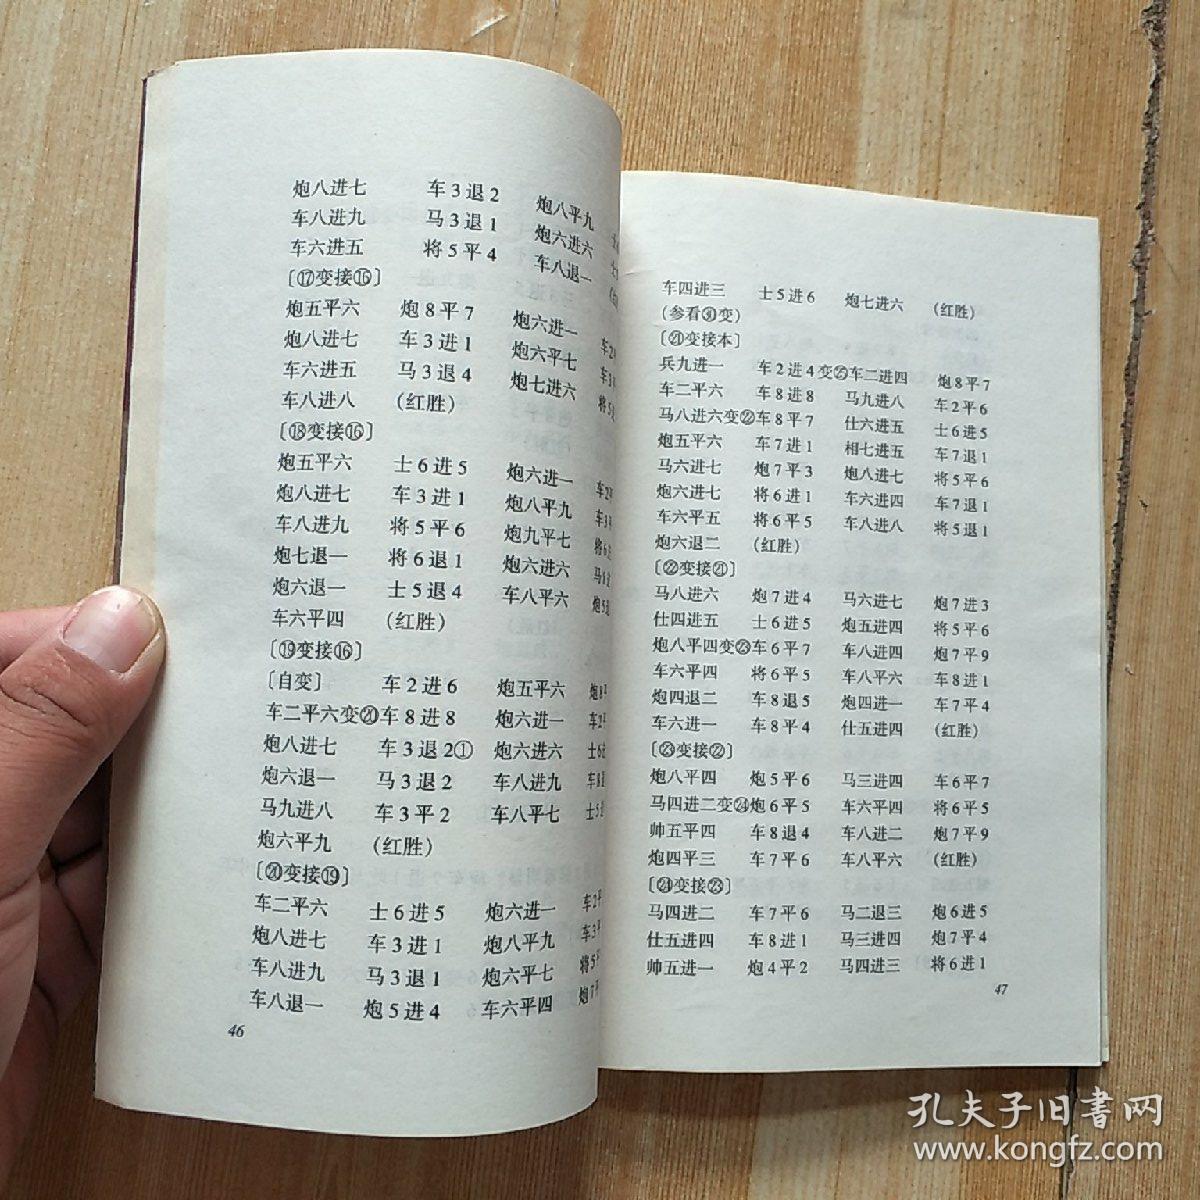 炮八进七 车3退2 炮八平九
车八进九 马3退1 炮六进六
车六进五 将5平4 车八退一
〔⑰变接⑯〕
炮五平六 炮8平7 炮六进一
炮八进七 车3进1 炮六平七
车六进五 马3退4 炮七进六
车八进八 (红胜)
〔⑱变接⑯〕
炮五平六 士6进5 炮六进一
炮八进七 车3进1 炮八平九
车八进九 将5平6 炮九平七
炮七退一 将6退1 炮六进六
炮六退一 士5退4 车八平六
车六平四 (红胜)
〔⑲变接⑯〕
〔自变〕 车2进6 炮五平六
车二平六变⑳车8进8 炮六进一
炮八进七 车3退2① 炮六进六
炮六退一 马3退2 车八进九
马九进八 车3平2 车八平七
炮六平九 (红胜)
〔⑳变接⑲〕
车二平六 士6进5 炮六进一
炮八进七 车3进1 炮八平九
车八进九 马3退1 炮六平七
车八退一 炮5进4 车六平四
46
车四进三 士5进6 炮七进六 (红胜)
(参看㉚变)
〔㉑变接本〕
兵九进一 车2进4变㉕车二进四 炮8平7
车二平六 车8进8 马九进八 车2平6
马八进六变㉒车8平7 仕六进五 士6进5
炮五平六 车7进1 相七进五 车7退1
马六进七 炮7平3 炮八进七 将5平6
炮六进七 将6进1 车六进四 车7退1
车六平五 将6平5 车八进八 将5退1
炮六退二 (红胜)
〔㉒变接㉑〕
马八进六 炮7进4 马六进七 炮7进3
仕四进五 士6进5 炮五进四 将5平6
炮八平四变㉓车6平7 车八进四 炮7平9
车六平四 将6平5 车八平六 车8进1
炮四退二 车8退5 炮四进一 车7平4
车六进一 车8平4 仕五进四 (红胜)
〔㉓变接㉒〕
炮八平四 炮5平6 马三进四 车6平7
马四进二变㉔炮6平5 车六平四 将6平5
帅五平四 车8退4 车八进二 炮7平9
炮四平三 车7平6 车八平六 (红胜)
〔㉔变接㉓〕
马四进二 车7平6 马二退三 炮6进5
仕五进四 车8进1 马三进四 炮7平4
帅五进一 炮4平2 马四进三 将6进1
47
孔夫子旧书网
www.kongfz.com